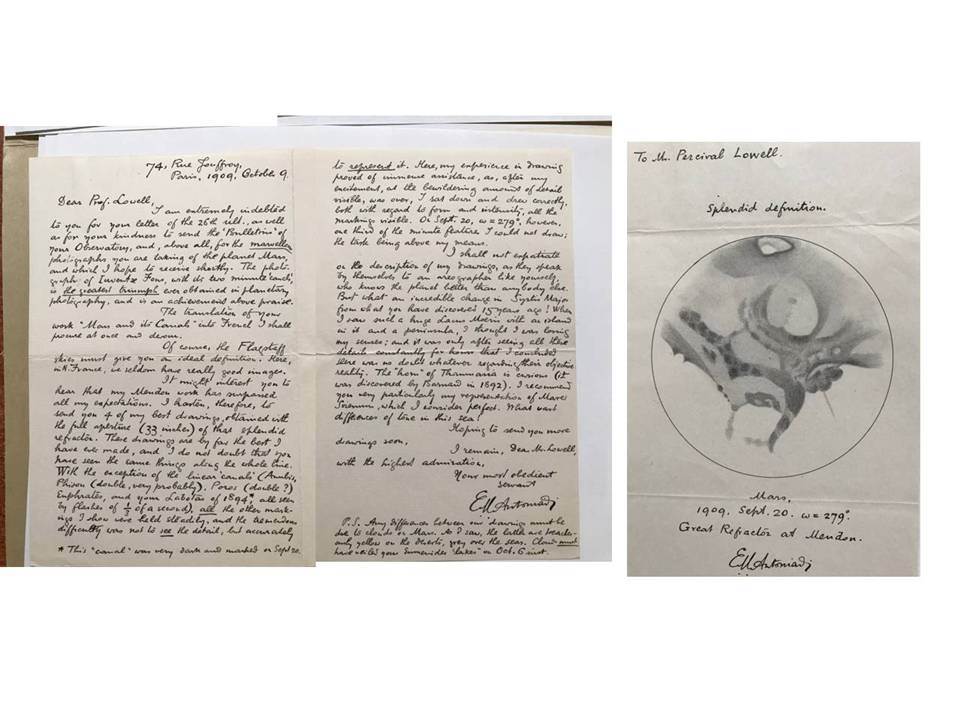 74, Rue Jouffroy,
Paris, 1909, October 9.
Dear Prof. Lowell,
I am extremely indebted
to you for your letter of the 26th ult., as well
as for your kindness to send the "Bulletins" of
your Observatory, and, above all, for the marvellous
photographs you are taking of the planet Mars,
and which I hope to receive shortly. The photo-
graph of Fons, with its two minute "canals",
is the greatest triumph ever obtained in planetary
photography, and is an achievement above praise.
The translation of your
work "Mars and its Canals" into French I shall
procure at once and devour.
Of course, the Flagstaff
skies must give you an ideal definition. Here,
in N. France, we seldom have really good images.
It might interest you to
hear that my Meudon work has surpassed
all my expectations. I hasten, therefore, to
send you 4 of my best drawings, obtained with
the full aperture (33 inches) of that splendid
refractor. These drawings are by far the best I
have ever made, and I do not doubt that you
have seen the same things along the whole line.
With the exception of the linear "canals" (Anubis,
Phison (double, very probably), Poros (double?)
Euphrates, and your Labotas of 1894*, all seen
by flashes of 1/3 of a second), all the other mark-
ings I show were held steadily, and the tremendous
difficulty was not to see the detail, but accurately
* This "canal" was very dark and marked on Sept 20.
to represent it. Here, my experience in drawing
proved of immense assistance, as, after my
excitement, at the bewildering amount of detail
visible, was over, I sat down and drew correctly,
both with regard to form and intensity, all the
markings visible. On Sept. 20, ω = 279°, however,
one third of the minute features I could not draw;
the task being above my means.
I shall not expatiate
on the description of my drawings, as they speak
by themselves to an areographer like yourself,
who knows the planet better than anybody else.
But what an incredible change in Syrtis Major
from what you have discovered 15 years ago! When
I saw such a huge Lacus Moeris with an island
in it and a peninsula, I thought I was losing
my senses; and it was only after seeing all these
details constantly for hours that I concluded
there was no doubt whatever regarding their objective
reality. The "horn" of is curious (it
was discovered by Barnard in 1892). I recommend
you very particularly my representation of Mare
which I consider perfect. What vast
differences of tone in this sea!
Hoping to send you more
drawings soon,
I remain, Dear Mr. Lowell,
with the highest admiration,
Your most obedient
servant
E.M. Antoniadi
P.S. Any differences between our drawings must be
due to clouds on Mars. As I saw, the latter are
only yellow on the deserts, grey over the seas. Clouds must
have veiled your "lakes" on Oct. 6 inst.
To M. Percival Lowell.
Splendid definition.
Mars,
1909. Sept. 20. ω = 279°.
Great Refractor at Meudon.
E.M. Antoniadi